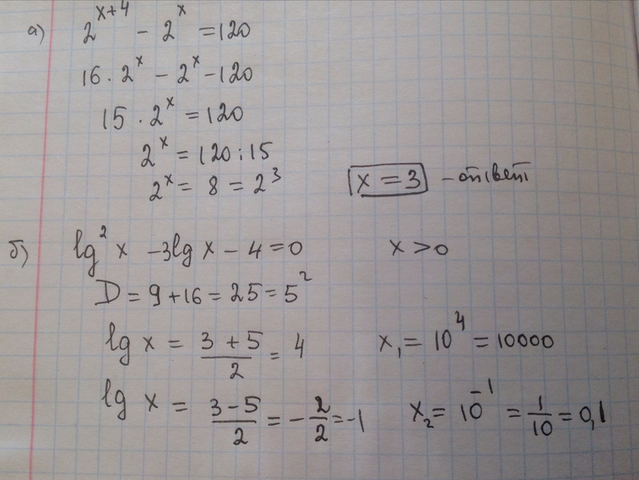 а) 2^{x+4} - 2^x = 120
16 · 2^x - 2^x - 120
15 · 2^x = 120
2^x = 120 : 15
2^x = 8 = 2^3 x = 3 - ответ
б) lg^2 x - 3lg x - 4 = 0 x > 0
D = 9 + 16 = 25 = 5^2
lg x = \frac{3+5}{2} = 4 x_1 = 10^4 = 10000
lg x = \frac{3-5}{2} = -\frac{2}{2} = -1 x_2 = 10^{-1} = \frac{1}{10} = 0,1